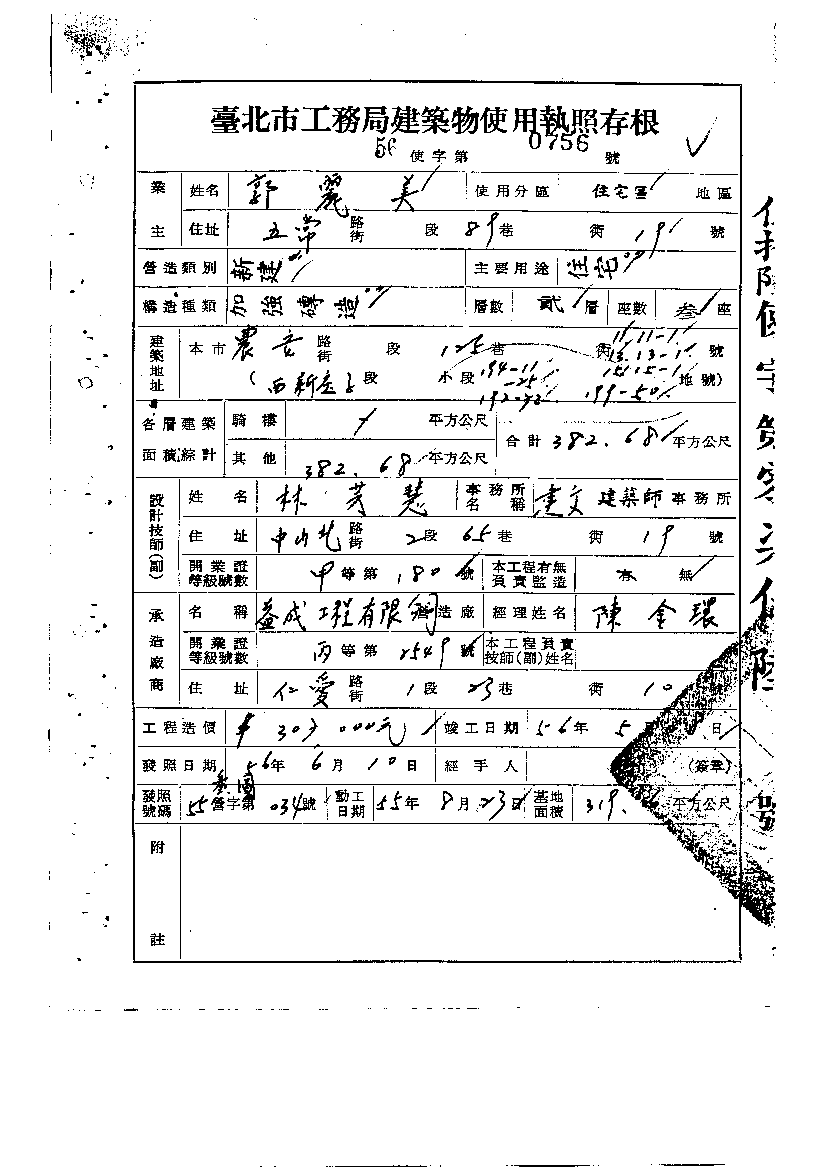 臺北市工務局建築物使用執照存根
56 使字第 0756 號
業主 姓名 郭麗美 使用分區 住宅區 地區
住址 五常 路街 段 89 巷 街 19 號
營造類別 新建 主要用途 住宅
構造種類 加強磚造 層數 貳 層 座數 叁 座
建築地址 本市 農安 路街 段 125 巷 街 11.11-1 13.13-1 15.15-1 號
(西新庄子段 小段 194-11 -25 192-32 199-50 地號)
各層建築面積綜計 騎樓 平方公尺 合計 382.68 平方公尺
其他 382.68 平方公尺
設計技師(副) 姓名 林芳慧 事務所名稱 建文 建築師事務所
住址 中山北 路街 2 段 65 巷 街 19 號
開業證等級號數 甲 等第 180 號 本工程有無負責監造 有 無
承造廠商 名稱 益成工程有限 營造廠 經理姓名 陳金環
開業證等級號數 丙 等第 2549 號 本工程負責技師(副)姓名
住址 仁愛 路街 1 段 23 巷 街 10 號
工程造價 303,000元 竣工日期 56年 5月 日
發照日期 56年 6月 10日 經手人 (簽章)
發照號碼 55 營字第 034 號 動工日期 55年 8月 23日 基地面積 319. 平方公尺
附註